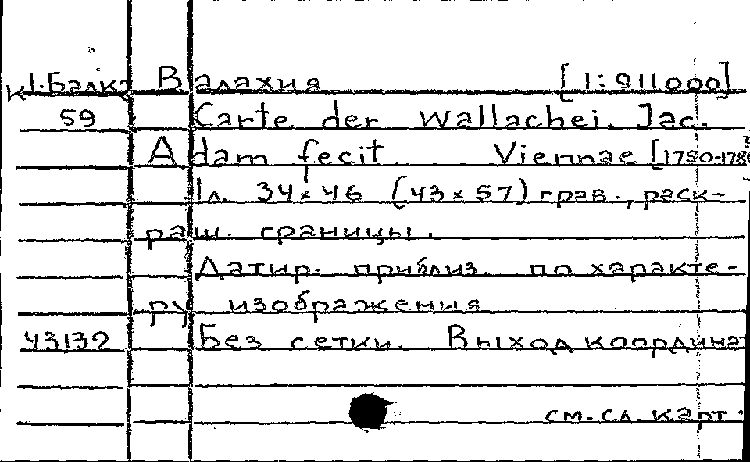 К 1-Балк. Валахия [1:911000]
59 Carte der Wallachei. Jac.
Adam fecit. Viennae [1780-178
1л. 34 × 46 (43 × 57) грав., раск-
раш. границы.
Датир. приблиз. по характе-
ру изображения
43132 Без сетки. Выход координа
см. сл. карт.